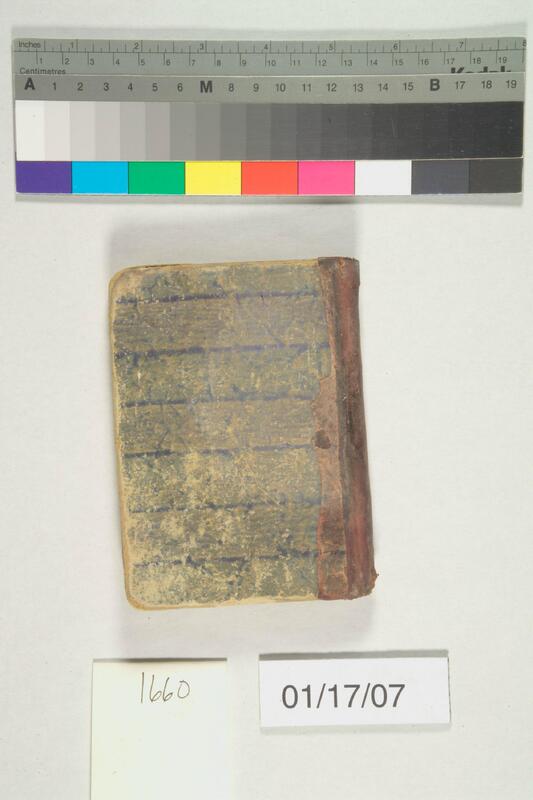 Inches 1 2 3 4 5 6 7 8
1 2 3 4 5 6 7 8 9 10 11 12 13 14 15 16 17 18 19
Centimetres
A 1 2 3 4 5 6 M 8 9 10 11 12 13 14 15 B 17 18 19
1660
01/17/07